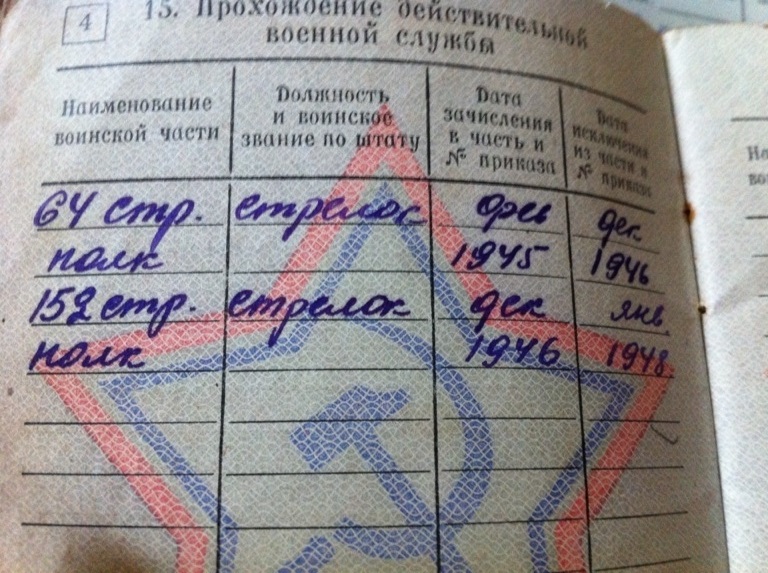 4
15. Прохождение действительной
военной службы
Наименование
воинской части
Должность
и воинское
звание по штату
Дата
зачисления
в часть и
№ приказа
Дата
исключения
из части и
№ приказа
64 стр. стрелок фев дек
полк 1945 1946
152 стр. стрелок дек янв.
полк 1946 1948